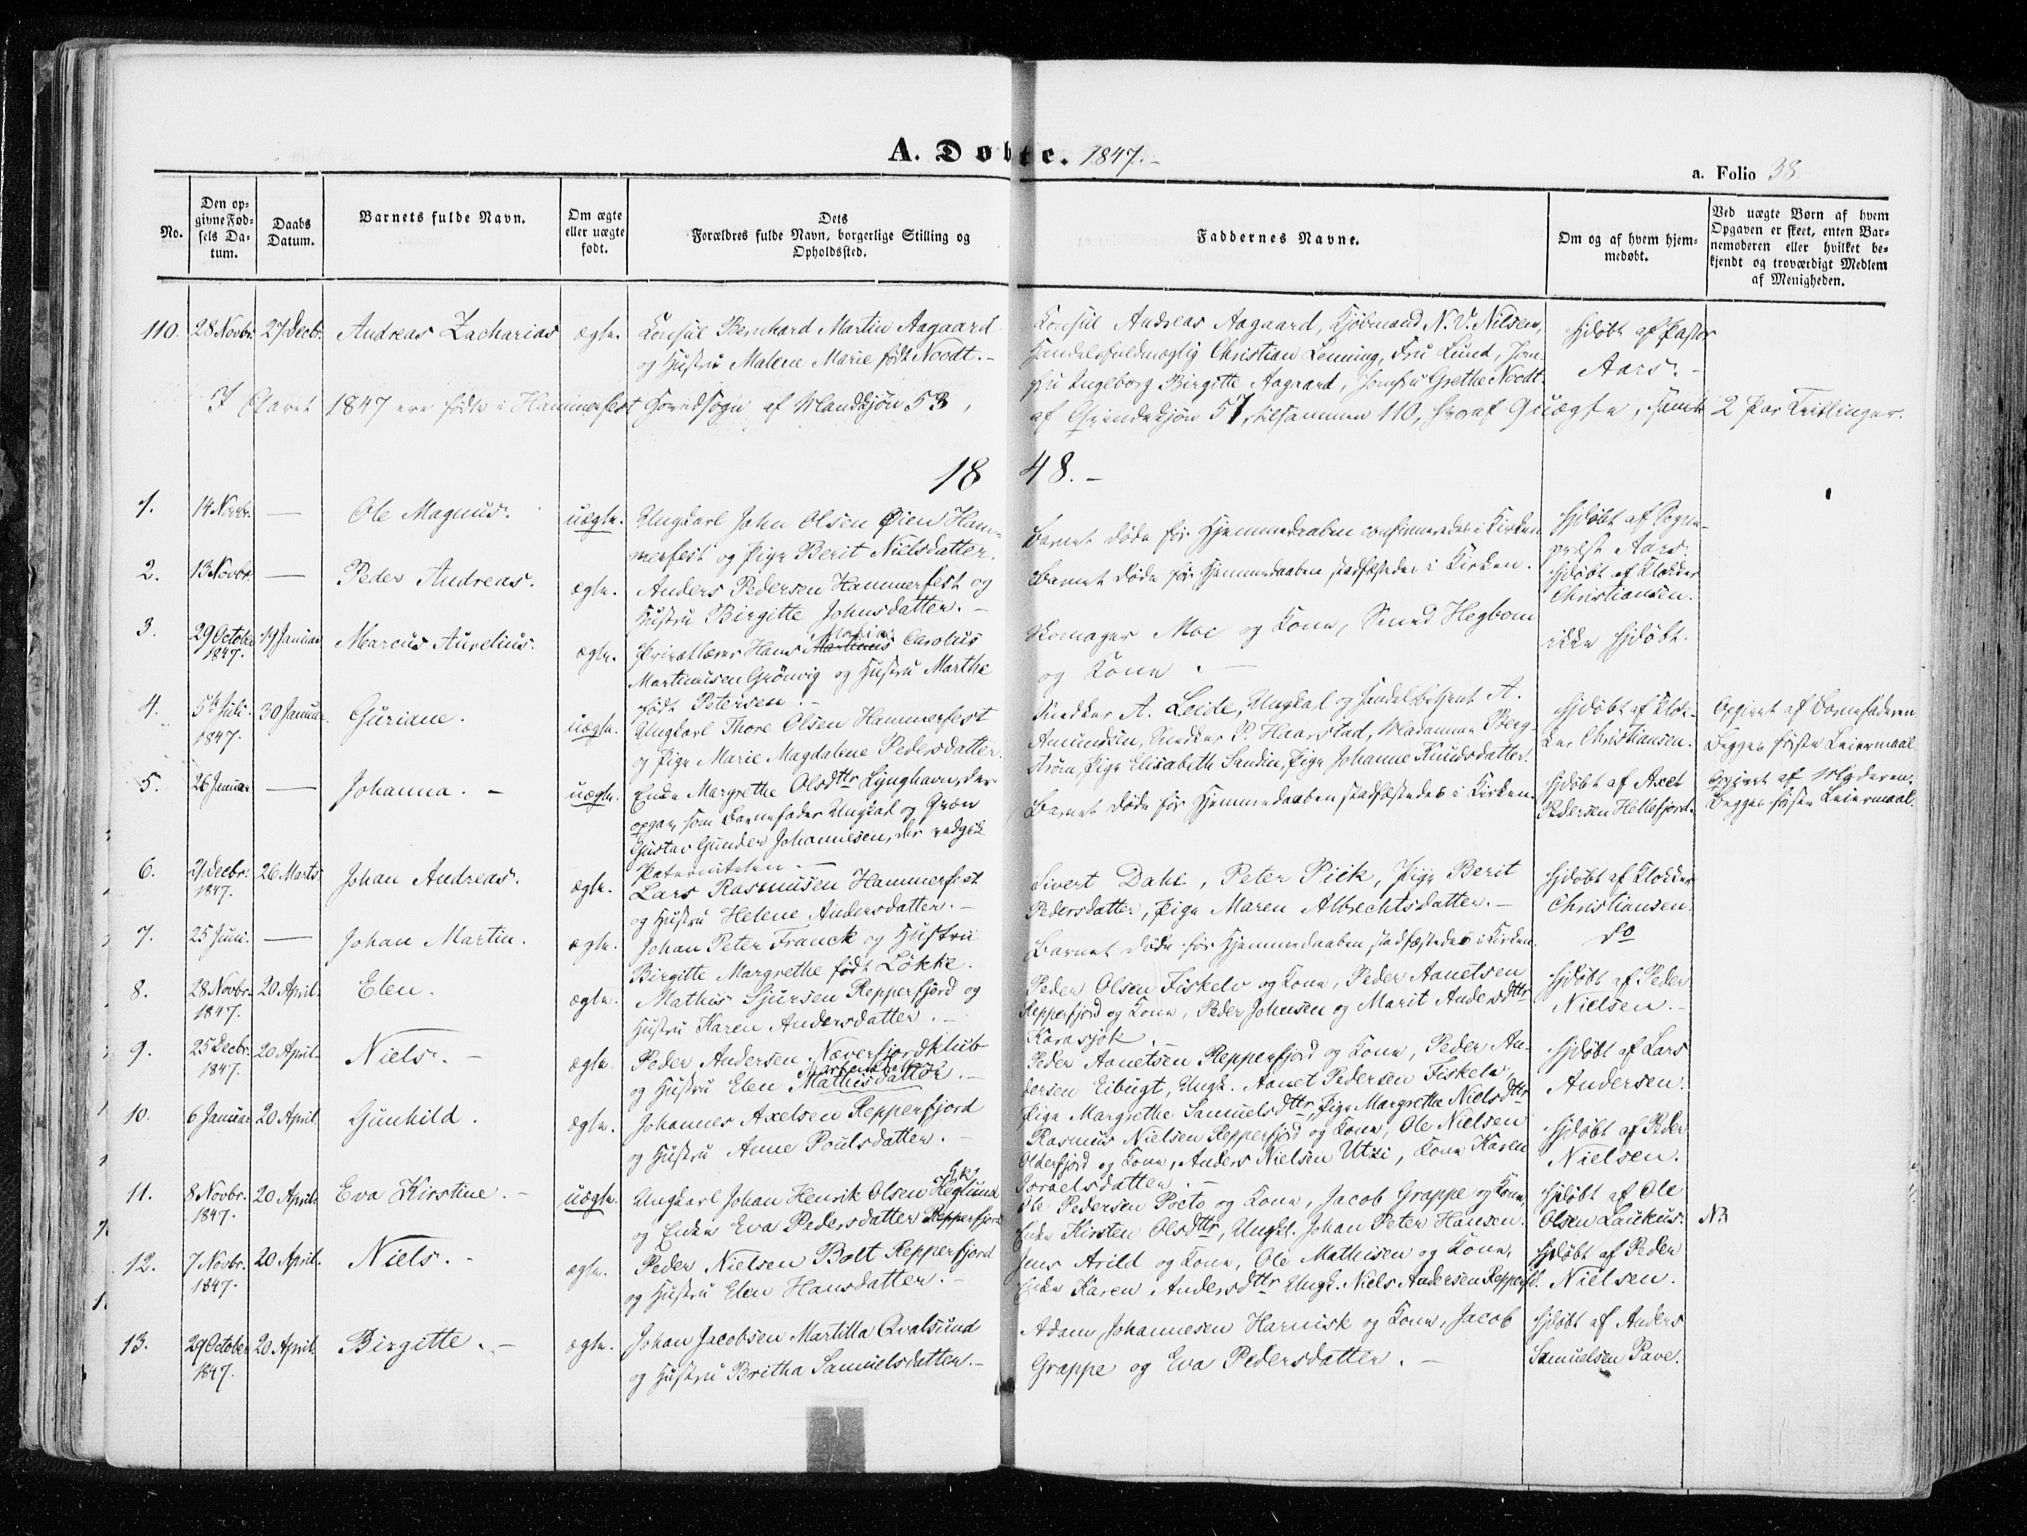 A. Døbte. 1847.-
a. Folio 38
No.
Den opgivne Fødsels Datum.
Daabs Datum.
Barnets fulde Navn.
Om ægte eller uægte født.
Dets Forældres fulde Navn, borgerlige Stilling og Opholdssted.
Faddernes Navne.
Om og af hvem hjemmedøbt.
Ved uægte Børn af hvem Opgaven er skeet, enten Barnemoderen eller hvilket bekjendt og troværdigt Medlem af Menigheden.
110. 28 Novbr. 27 Decbr. Andreas Zacharias ægte. Konsul Bernhard Martin Aagaard
og Hustru Malene Marie født Noodt.-
Konsul Andreas Aagaard, Kjøbmand N. V. Nilsen,
Handelsfuldmægtig Christian Lenning, Fru Lund, Jom-
fru Ingeborg Birgitte Aagaard, Jomfru Grethe Noodt.
Hjdøbt af Pastor
Aars.-
I Aaret 1847 ere fødte i Hammerfest Hovedsogn af Mandkjøn 53, af Qvindekjøn 57, tilsammen 110, hvoraf 9 uægte, samt 2 Par Tvillinger.
1848.-
1. 14 Novbr. — Ole Magnus. uægte. Ungkarl John Olsen Øien Ham-
merfest og Pige Berit Nielsdatter.
Barnet døde før Hjemmedaaben confirmeredes i Kirken
Hjdøbt af Sogne-
præst Aars.
2. 13 Novbr. — Peder Andreas. ægte. Anders Pedersen Hammerfest og
Hustru Birgitte Johnsdatter.-
Barnet døde før Hjemmedaaben stadfæstedes i Kirken.
Hjdøbt af Klokker
Christiansen.
3. 29 October 1847. 19 Januar Marcus Aurelius. ægte. Privatlærer Hans Martinus Carolus
Martinusen Grönvig og Hustru Marthe
født Petersen.-
Skomager Moe og Kone, Smed Hegbom
og Kone.-
ikke hjdøbt.
4. 5te Juli 1847. 30 Januar. Guriane. uægte. Ungkarl Thore Olsen Hammerfest
og Pige Marie Magdalene Pedersdatter
Snedker A. Leide, Ungkal og Handelsbetjent A.
Amundsen, Snedker P. Haarstad, Madamme Berg-
strøm, Pige Elisabeth Sandin, Pige Johanne Knudsdatter.
Hjdøbt af Klok-
ker Christiansen.
Opgivet af Barnefaderen
Begges første Leiermaal
5. 26 Januar — Johanna.- uægte. Enke Margrethe Olsdttr Lynghavn, der
opgav som Barnefader Ungkal og Qvæn
Gustav Gunder Johannesen, der vedgik
Paterniteten.-
Barnet døde før Hjemmedaaben stadfæstedes i Kirken.
Hjdøbt af Axel
Pedersen Hellefjord.
Opgivet af Moderen.
Begges første Leiermaal.
6. 21 Decbr. 1847. 26 Marts Johan Andreas. ægte. Lars Rasmusen Hammerfest
og Hustru Helene Andersdatter.-
Sivert Dahl, Peter Pick, Pige Berit
Pedersdatter, Pige Maren Albrechtsdatter.-
Hjdøbt af Klokker
Christiansen.
7. 25 Juni. — Johan Martin. ægte. Johan Peter Franck og Hustru
Birgitte Margrethe født Løkke.
Barnet døde før Hjemmedaaben stadfæstedes i Kirken.
do
8. 28 Novbr. 1847. 20 April. Elen. ægte. Mathis Sjursen Repperfjord og
Hustru Karen Andersdatter.-
Peder Olsen Fiskelv og Kone, Peder Aanetsen
Repperfjord og Kone, Peder Johnsen og Marit Andersdttr
Karasjok.
Hjdøbt af Peder
Nielsen.-
9. 25 Decbr. 1847. 20 April. Niels.- ægte. Peder Andersen Næverfjordklub
og Hustru Elen Mathisdatter.-
Peder Aanetsen Repperfjord og Kone, Peder An-
dersen Eibugt, Ungk. Aanet Pedersen Fiskelv,
Pige Margrethe Samuelsdttr, Pige Margrethe Nielsdttr
Hjdøbt af Lars
Andersen.
10. 6 Januar 20 April. Gunhild. ægte. Johannes Axelsen Repperfjord
og Hustru Anne Poulsdatter.-
Rasmus Nielsen Repperfjord og Kone, Ole Nielsen
Olderfjord og Kone, Anders Nielsen Utzi, Kone Karen
Israelsdatter.-
Hjdøbt af Peder
Nielsen.
11. 8 Novbr. 1847. 20 April. Eva Kirstine.- uægte. Ungkarl Johan Henrik Olsen Heglund
og Enke Eva Pedersdatter Repperfjord
Ole Pedersen Posto og Kone, Jacob Grappe og Kone,
Enke Kirsten Olsdttr, Ungkl. Johan Peter Hansen.
Hjdøbt af Ole
Olsen Laukus.
NB
12. 7 Novbr. 1847. 20 April. Niels.- ægte. Peder Nielsen Bolt Repperfjord
og Hustru Elen Hansdatter.-
Jens Arild og Kone, Ole Mathisen og Kone,
Enke Karen Andersdttr, Ungk. Niels Andersen Repperfd.
Hjdøbt af Peder
Nielsen.
13. 29 October 1847. 20 April. Birgitte.- ægte. Johan Jacobsen Martilla Qvalsund
og Hustru Britha Samuelsdatter.-
Adam Johannesen Harnisk og Kone, Jacob
Grappe og Eva Pedersdatter.-
Hjdøbt af Anders
Samuelsen Pave.